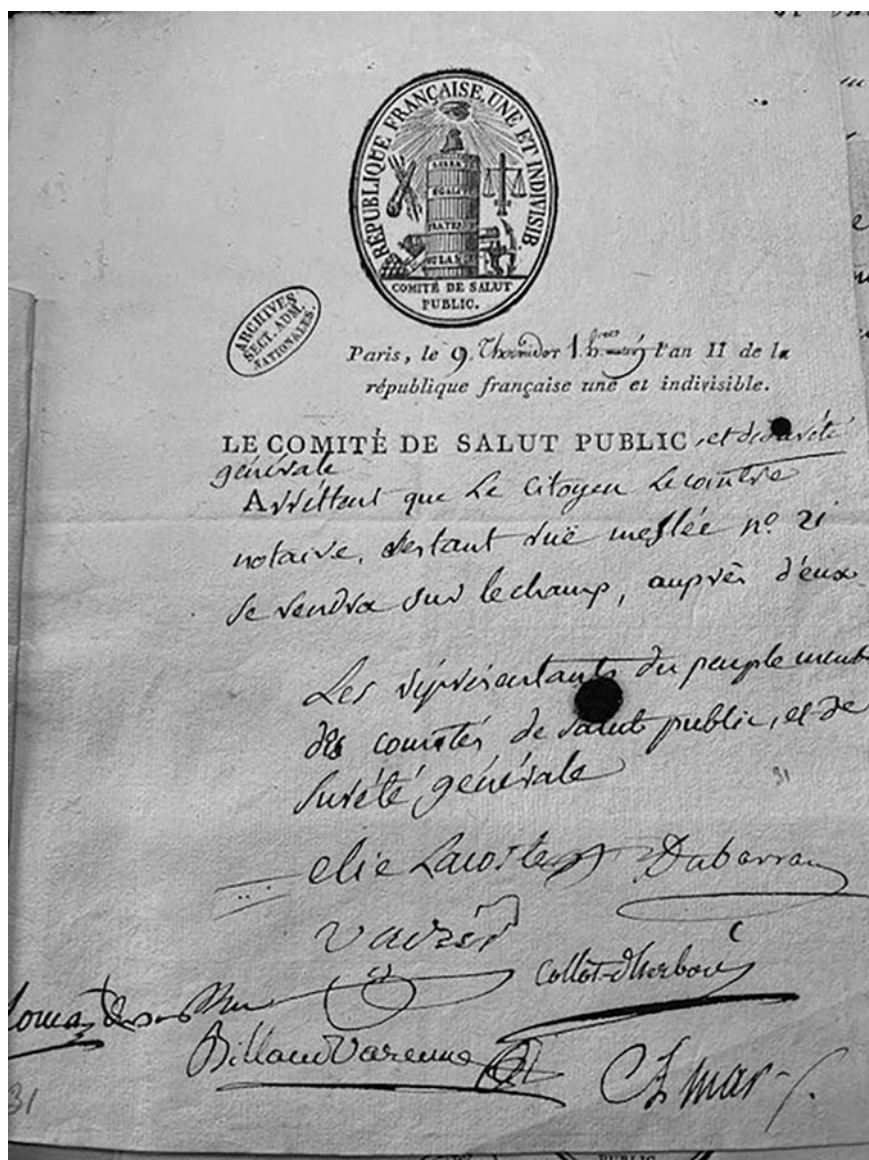 RÉPUBLIQUE FRANÇAISE, UNE ET INDIVISIB.
COMITÉ DE SALUT
PUBLIC.
ARCHIVES
SECT. ADM.
NATIONALES.
Paris, le 9. Thermidor 1 h. l'an II de la
république française une et indivisible.
LE COMITÉ DE SALUT PUBLIC, et de sureté
générale
Arrêttent que Le Citoyen Lecointre
notaire, restant ruë meslée nº 21
se rendra sur lechamp, auprès d'eux
Les réprésentants du peuple memb
des comités de salut public, et de
sureté générale
elie Lacoste Dubarran
Vadier Collot-dherbois
Billaud Varenne Amar
31
31
PUBLIC